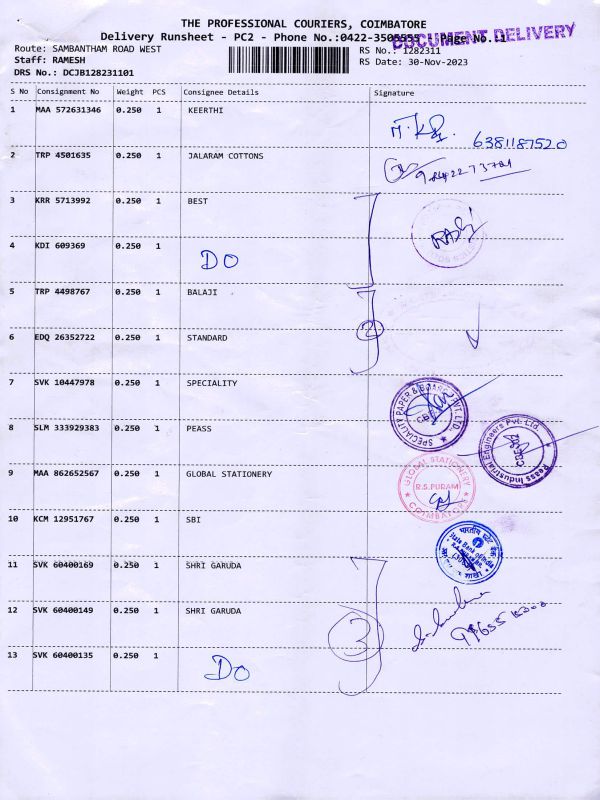 THE PROFESSIONAL COURIERS, COIMBATORE
Delivery Runsheet - PC2 - Phone No.:0422-3505555 Page No.:1
DOCUMENT DELIVERY
Route: SAMBANTHAM ROAD WEST RS No.: 1282311
Staff: RAMESH RS Date: 30-Nov-2023
DRS No.: DCJB128231101
S No Consignment No Weight PCS Consignee Details Signature
1 MAA 572631346 0.250 1 KEERTHI
6381187520
2 TRP 4501635 0.250 1 JALARAM COTTONS
3 KRR 5713992 0.250 1 BEST
4 KDI 609369 0.250 1 DO
5 TRP 4498767 0.250 1 BALAJI
2
6 EDQ 26352722 0.250 1 STANDARD
7 SVK 10447978 0.250 1 SPECIALITY
SPECIALITY PAPER & BOARDS PVT. LTD.
8 SLM 333929383 0.250 1 PEASS
Peass Industrial Engineers Pvt. Ltd.
9 MAA 862652567 0.250 1 GLOBAL STATIONERY
GLOBAL STATIONERY
R.S.PURAM
COIMBATORE
10 KCM 12951767 0.250 1 SBI
भारतीय स्टेट बैंक
State Bank of India
11 SVK 60400169 0.250 1 SHRI GARUDA
12 SVK 60400149 0.250 1 SHRI GARUDA
3
13 SVK 60400135 0.250 1 DO